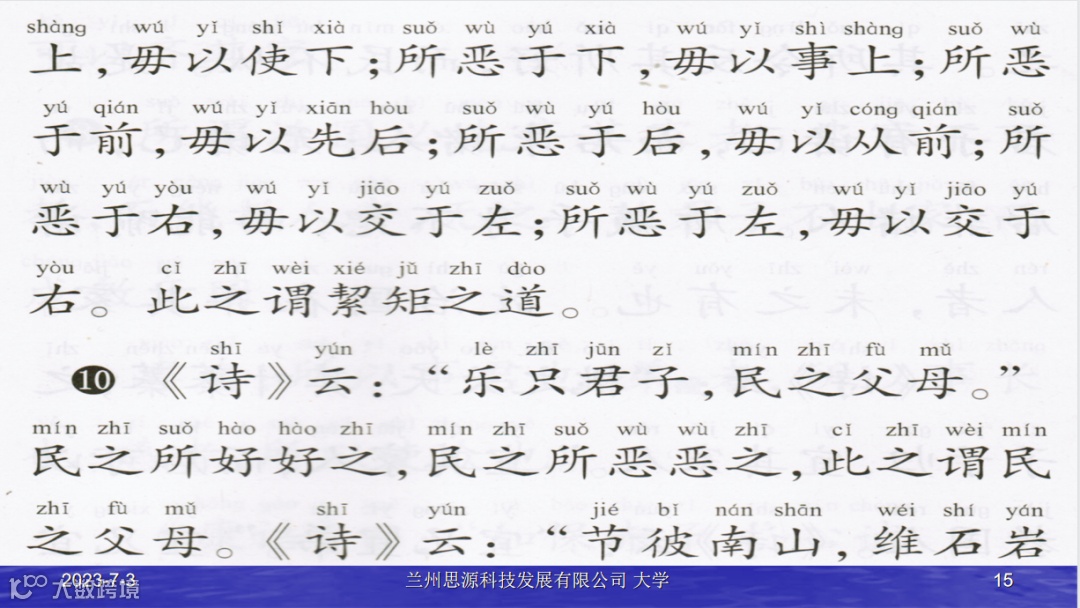 shàng wú yǐ shǐ xià suǒ wù yú xià wú yǐ shì shàng suǒ wù
上,毋以使下;所恶于下,毋以事上;所恶
yú qián wú yǐ xiān hòu suǒ wù yú hòu wú yǐ cóng qián suǒ
于前,毋以先后;所恶于后,毋以从前;所
wù yú yòu wú yǐ jiāo yú zuǒ suǒ wù yú zuǒ wú yǐ jiāo yú
恶于右,毋以交于左;所恶于左,毋以交于
yòu cǐ zhī wèi xié jǔ zhī dào
右。此之谓絜矩之道。
shī yún lè zhǐ jūn zǐ mín zhī fù mǔ
10 《诗》云:“乐只君子,民之父母。”
mín zhī suǒ hào hào zhī mín zhī suǒ wù wù zhī cǐ zhī wèi mín
民之所好好之,民之所恶恶之,此之谓民
zhī fù mǔ shī yún jié bǐ nán shān wéi shí yán
之父母。《诗》云:“节彼南山,维石岩
2023-7-3 兰州思源科技发展有限公司 大学 15
大数跨境